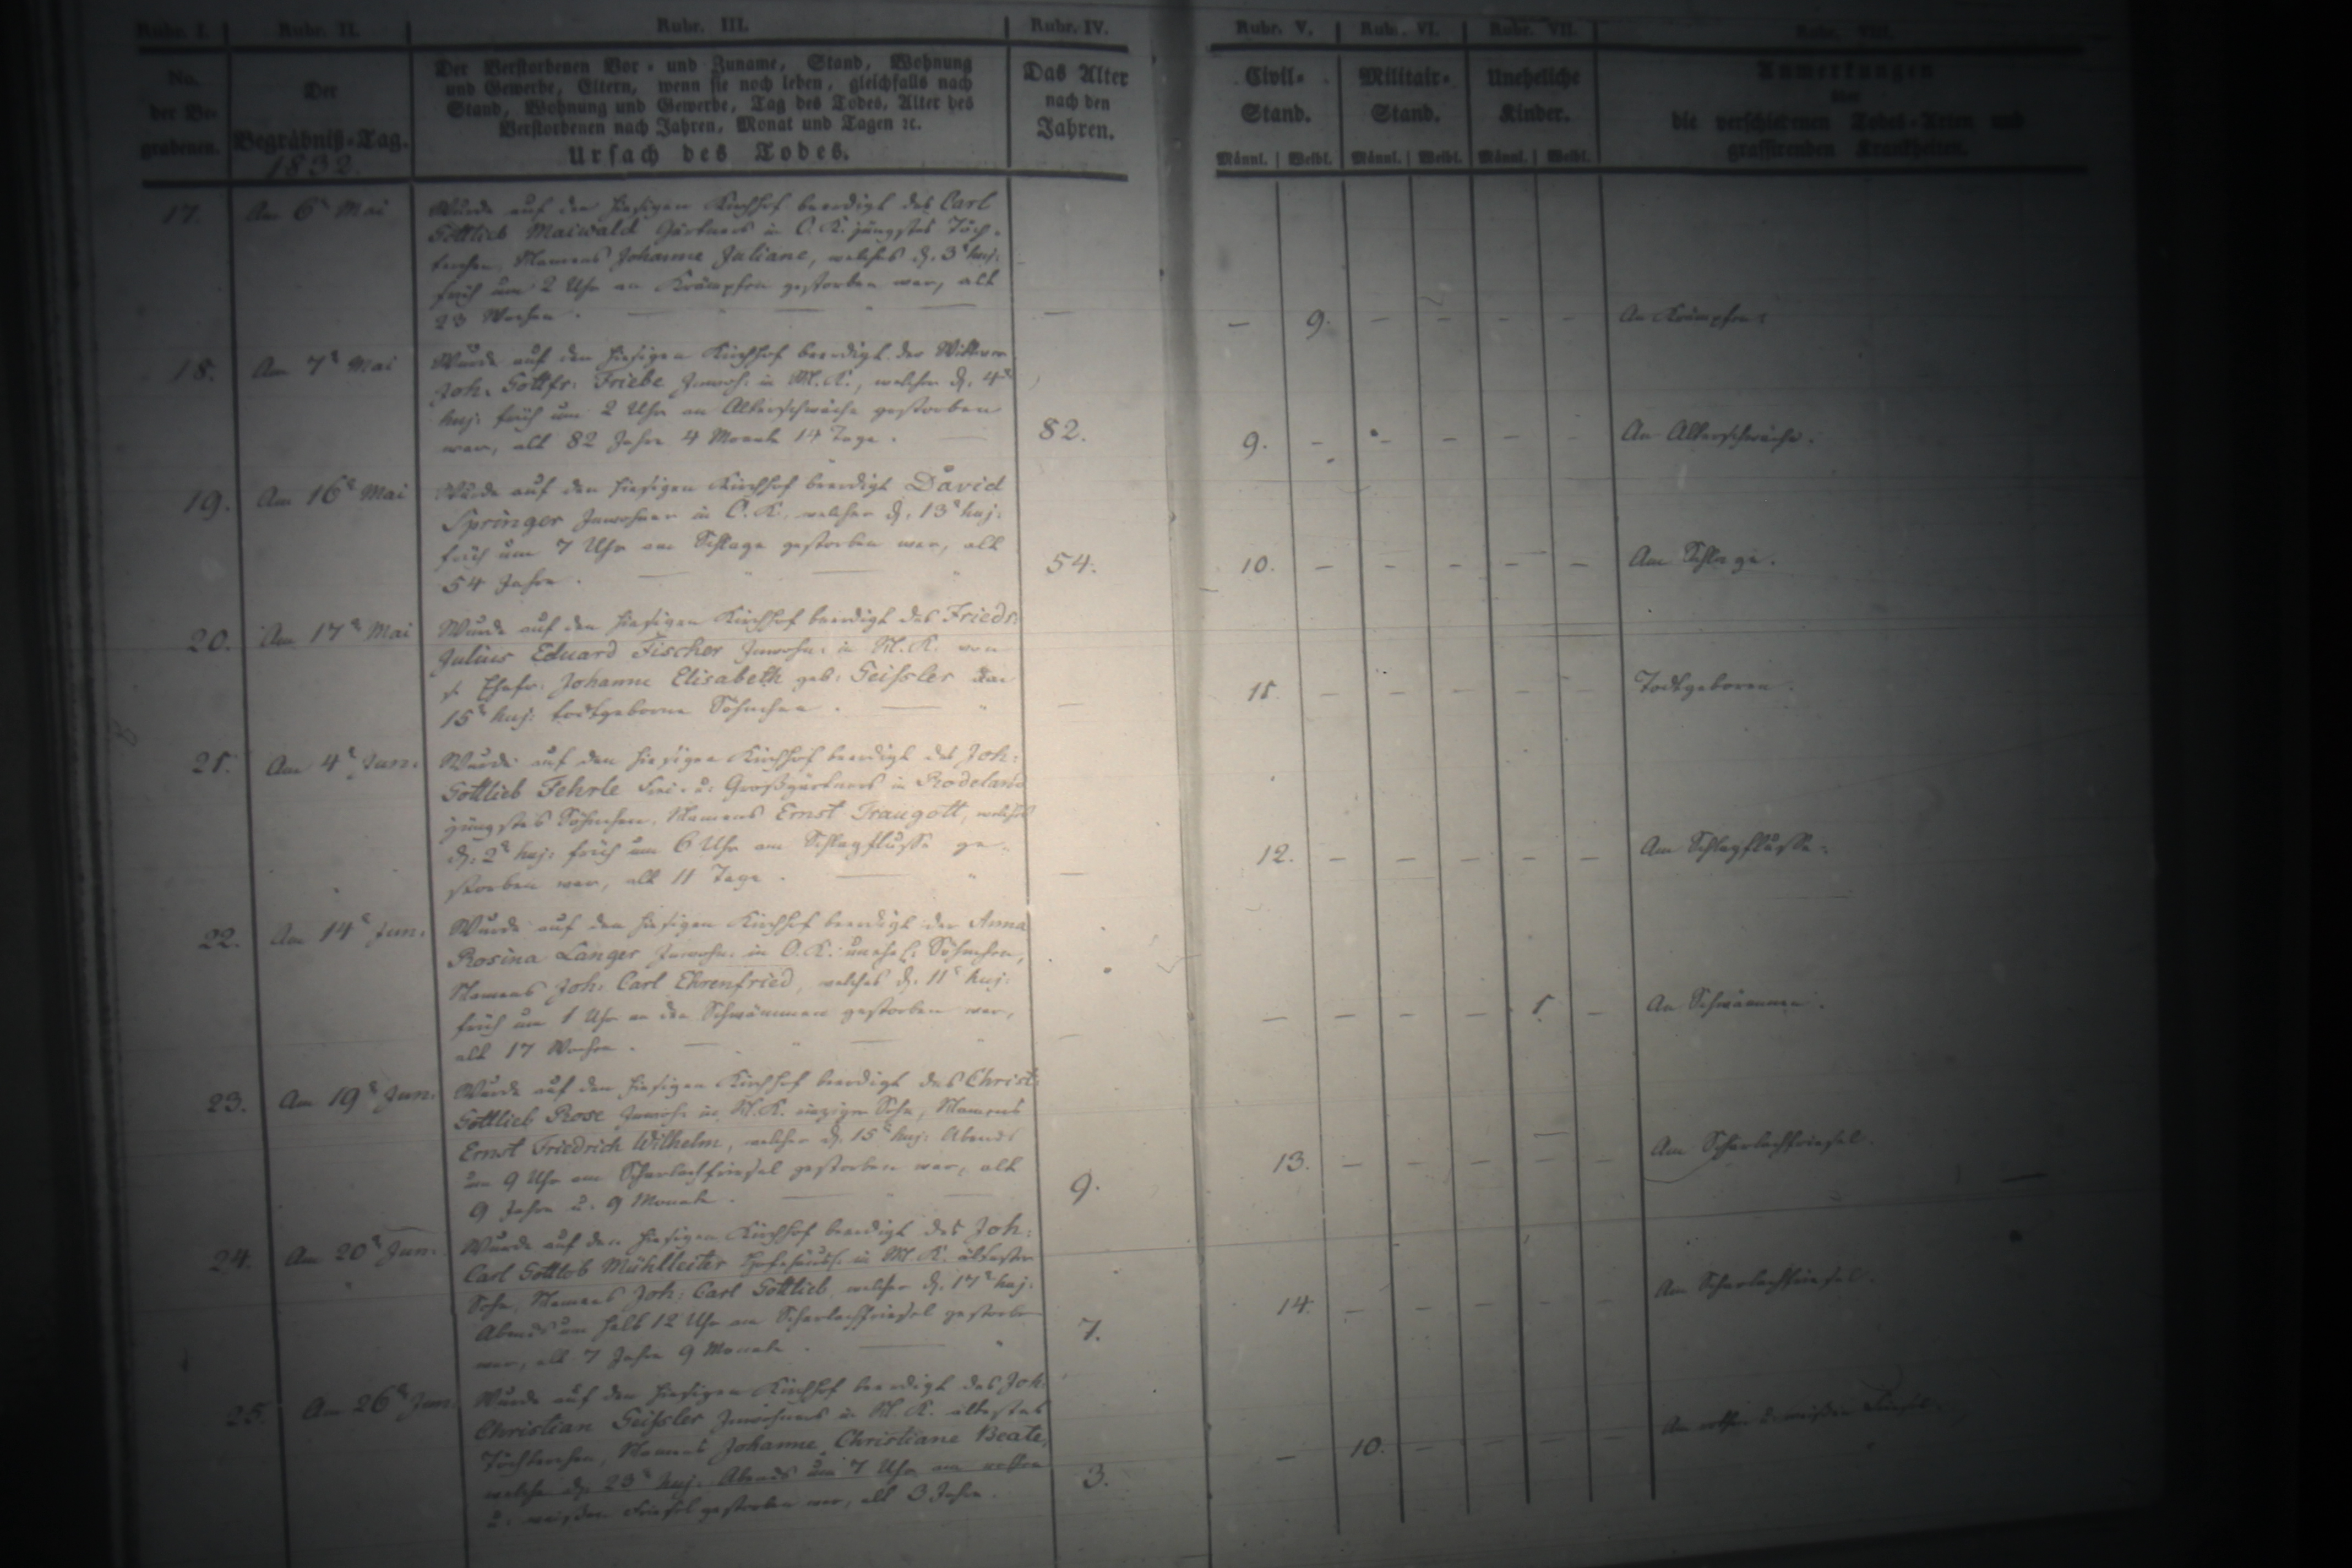 Rubr. I. Rubr. II. Rubr. III. Rubr. IV. Rubr. V. Rubr. VI. Rubr. VII. Rubr. VIII.
No. der Be- grabenen.
Der Begräbniß-Tag. 1832.
Der Verstorbenen Vor- und Zuname, Stand, Wohnung
und Gewerbe, Eltern, wenn sie noch leben, gleichfalls nach
Stand, Wohnung und Gewerbe, Tag des Todes, Alter des
Verstorbenen nach Jahren, Monat und Tagen ꝛc.
Ursach des Todes.
Das Alter
nach den
Jahren.
Civil-
Stand.
Militair-
Stand.
Uneheliche
Kinder.
Männl. Weibl. Männl. Weibl. Männl. Weibl.
Anmerkungen
über
die verschiedenen Todes-Arten und
grassirenden Krankheiten.
17. Am 6t Mai
Wurde auf den hiesigen Kirchhof beerdigt des Carl
Gottlieb Maiwald Gärtners in O. K. jüngstes Töch-
terchen, Namens Johanne Juliane, welches d. 3t huj.
früh um 2 Uhr an Krämpfen gestorben war, alt
23 Wochen. — — 9. — — — — An Krämpfen.
18. Am 7t Mai
Wurde auf den hiesigen Kirchhof beerdigt der Wittwer
Joh. Gottfr. Friebe Inwoh. in M. K., welcher d. 4t
huj. früh um 2 Uhr an Altersschwäche gestorben
war, alt 82 Jahre 4 Monate 14 Tage. 82. 9. — — — — — An Altersschwäche.
19. Am 16t Mai
Wurde auf den hiesigen Kirchhof beerdigt David
Springer Inwohner in O. K., welcher d. 13t huj.
früh um 7 Uhr am Schlage gestorben war, alt
54 Jahre. 54. 10. — — — — — Am Schlage.
20. Am 17t Mai
Wurde auf den hiesigen Kirchhof beerdigt des Friedr.
Julius Eduard Fischer Inwohn. in M. K. von
s. Ehefr. Johanne Elisabeth geb. Geißler den
15t huj. todtgeborne Söhnchen. — 11 — — — — — Todtgeboren.
21. Am 4t Jun.
Wurde auf den hiesigen Kirchhof beerdigt des Joh:
Gottlieb Fehrle Frei- u. Großgärtners in Rodeland
jüngstes Söhnchen, Namens Ernst Traugott, welches
d. 2t huj. früh um 6 Uhr am Schlagflusse ge-
storben war, alt 11 Tage. — 12. — — — — — Am Schlagflusse.
22. Am 14t Jun.
Wurde auf den hiesigen Kirchhof beerdigt der Anna
Rosina Langer Inwohn. in O. K. unehel. Söhnchen,
Namens Joh: Carl Ehrenfried, welches d. 11t huj.
früh um 1 Uhr an den Schwämmen gestorben war,
alt 17 Wochen. — — — — — 1. — An Schwämmen.
23. Am 19t Jun.
Wurde auf den hiesigen Kirchhof beerdigt des Christ:
Gottlieb Rose Inwoh. in M. K. einziger Sohn, Namens
Ernst Friedrich Wilhelm, welcher d. 15t huj. Abends
um 9 Uhr am Scharlachfriesel gestorben war, alt
9 Jahre u. 9 Monate. 9. 13. — — — — — Am Scharlachfriesel.
24. Am 20t Jun.
Wurde auf den hiesigen Kirchhof beerdigt des Joh:
Carl Gottlob Mühlleiter Hofehäusl. in M. K. ältester
Sohn, Namens Joh: Carl Gottlieb, welcher d. 17t huj.
Abends um halb 12 Uhr am Scharlachfriesel gestorben
war, alt 7 Jahre 9 Monate. 7. 14. — — — — — Am Scharlachfriesel.
25. Am 26t Jun.
Wurde auf den hiesigen Kirchhof beerdigt des Joh.
Christian Geißler Inwohners in M. K. ältestes
Töchterchen, Namens Johanne Christiane Beate,
welche d. 23t huj. Abends um 7 Uhr am rothen
u. weißen Friesel gestorben war, alt 3 Jahre. 3. — 10. — — — — Am rothen u. weißen Friesel.